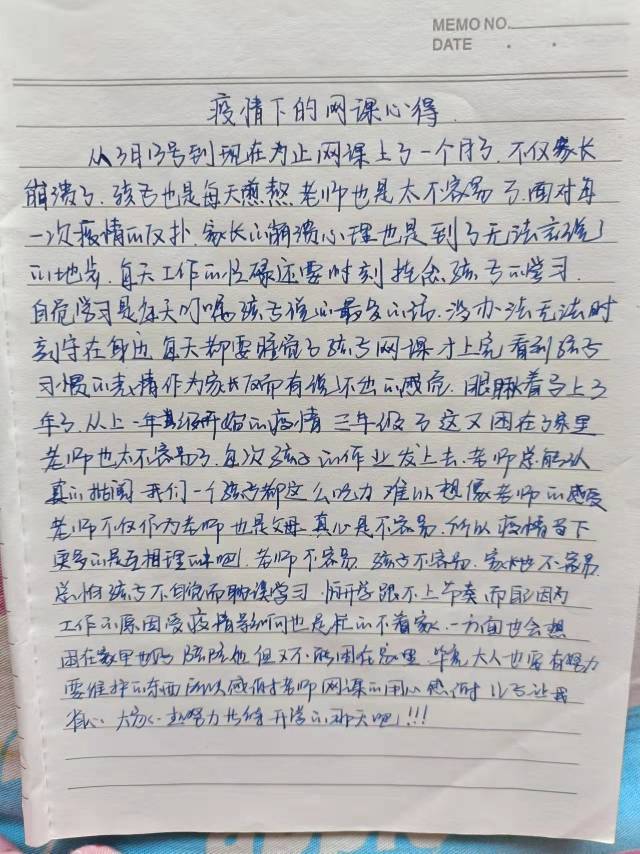 MEMO NO.
DATE . .
疫情下的网课心得.
从3月13号到现在为止网课上了一个月了.不仅家长
崩溃了.孩子也是每天煎熬.老师也是太不容易了.面对每
一次疫情的反扑.家长的崩溃心理也是到了无法言说
的地步.每天工作的忙碌还要时刻挂念孩子的学习.
自觉学习是每天叮嘱孩子说的最多的话.没办法无法时
刻守在身边.每天都要睡觉了孩子网课才上完.看到孩子
习惯的表情作为家长反而有说不出的感觉.眼瞅着马上3
年了.从上一年级开始的疫情三年级了这又困在了家里
老师也太不容易了.每次孩子的作业发上去.老师总能认
真的批阅.我们一个孩子都这么吃力难以想像老师的感受
老师不仅作为老师也是父母.真心是不容易.所以疫情当下
更多的是互相理解吧!老师不容易.孩子不容易.家长也不容易.
总怕孩子不自觉而耽误学习.怕开学跟不上节奏.而且因为
工作的原因受疫情影响也是忙的不着家.一方面也会想
困在家里也好陪陪他但又不能困在家里.毕竟大人也要有努力
要维护的东西所以感谢老师网课的用心感谢儿子让我
省心.大家一起努力共待开学的那天吧!!!